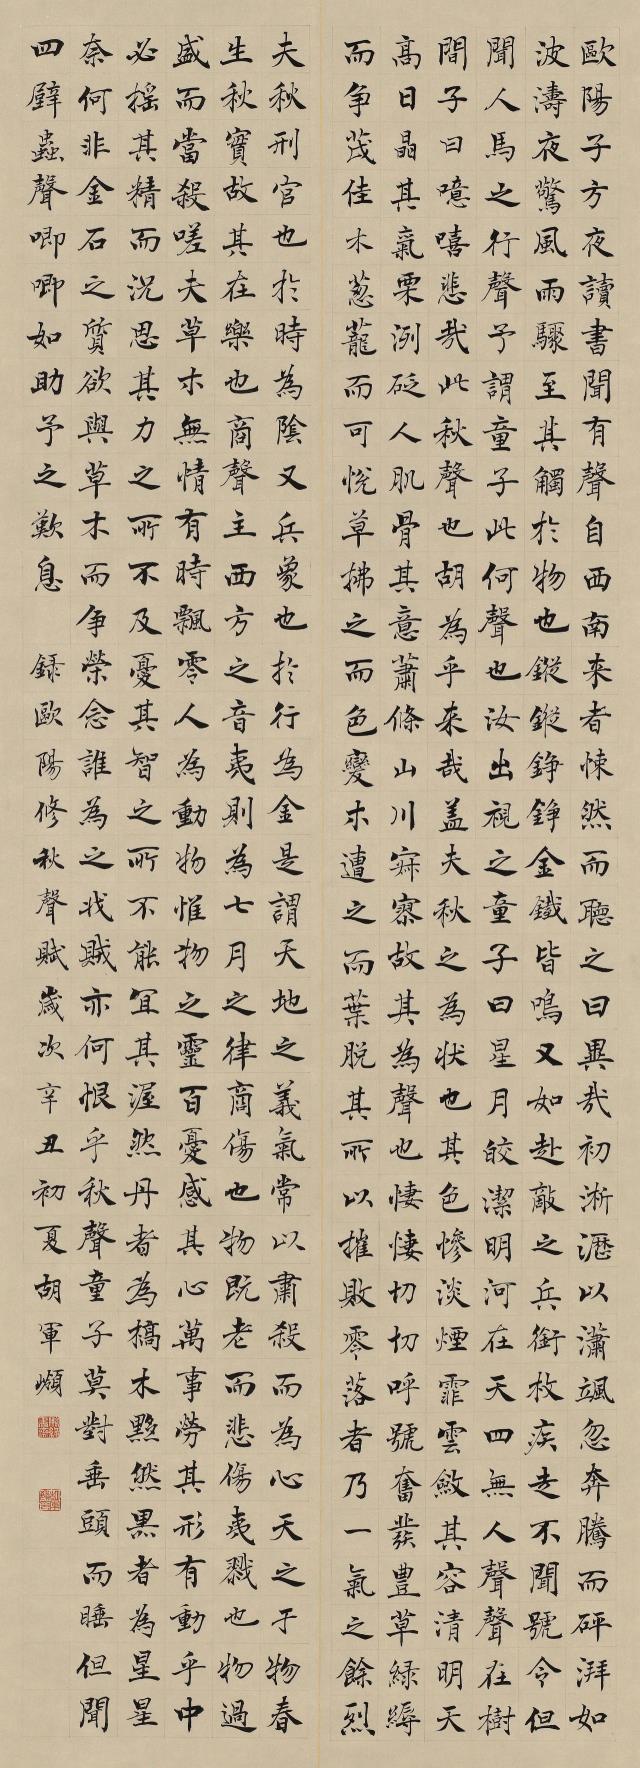 歐陽子方夜讀書聞有聲自西南来者悚然而聽之曰異哉初淅瀝以瀟颯忽奔騰而砰湃如
波濤夜驚風雨驟至其觸於物也鏦鏦錚錚金鐵皆鳴又如赴敵之兵銜枚疾走不聞號令但
聞人馬之行聲予謂童子此何聲也汝出視之童子曰星月皎潔明河在天四無人聲聲在樹
間予曰噫嘻悲哉此秋聲也胡為乎来哉盖夫秋之為狀也其色慘淡煙霏雲斂其容清明天
高日晶其氣栗冽砭人肌骨其意蕭條山川寂寥故其為聲也悽悽切切呼號奮發豊草綠縟
而争茂佳木葱蘢而可悅草拂之而色變木遭之而葉脫其所以摧敗零落者乃一氣之餘烈
夫秋刑官也於時為陰又兵象也於行為金是謂天地之義氣常以肅殺而為心天之于物春
生秋實故其在樂也商聲主西方之音夷則為七月之律商傷也物既老而悲傷夷戮也物過
盛而當殺嗟夫草木無情有時飄零人為動物惟物之靈百憂感其心萬事勞其形有動乎中
必摇其精而況思其力之所不及憂其智之所不能宜其渥然丹者為槁木黟然黑者為星星
奈何非金石之質欲與草木而争榮念誰為之戕賊亦何恨乎秋聲童子莫對垂頭而睡但聞
四壁蟲聲唧唧如助予之歎息 錄歐陽修秋聲賦歲次辛丑初夏胡軍